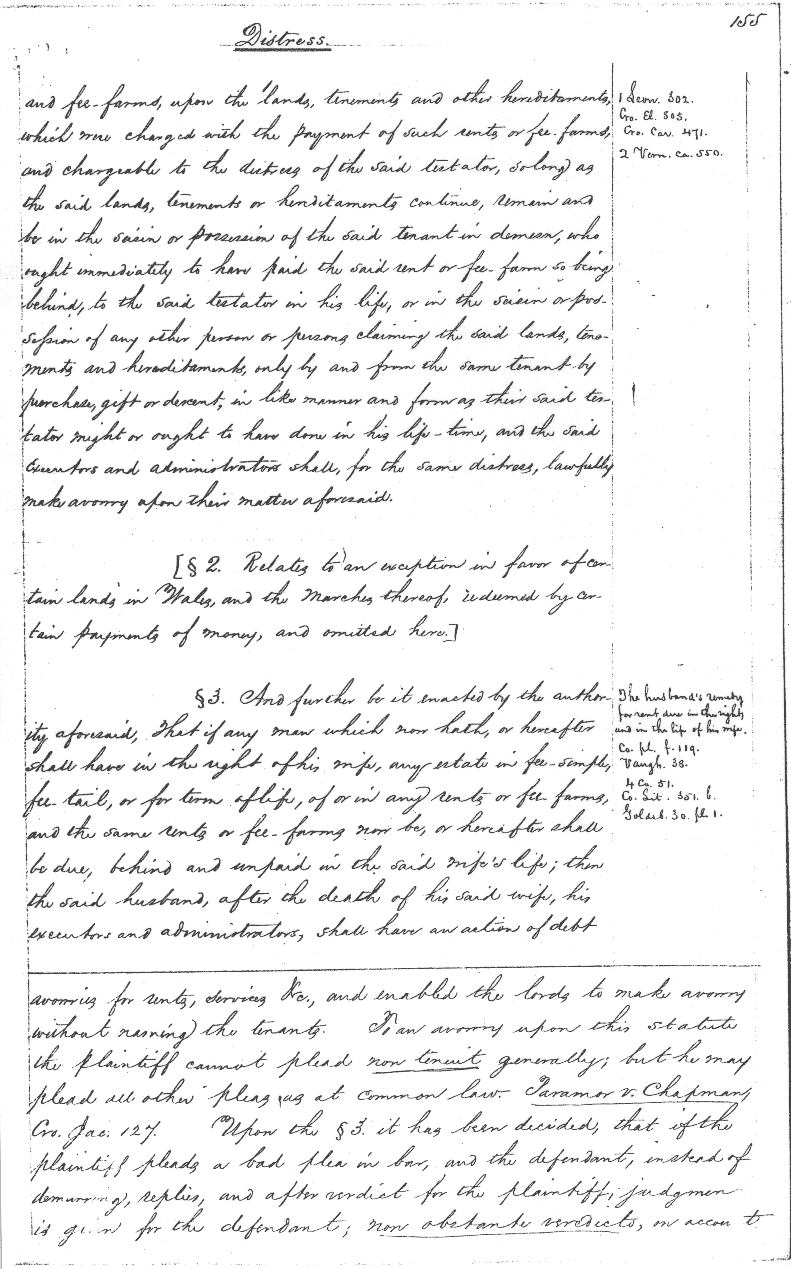 155
Distress.
and fee-farms, upon the lands, tenements and other hereditaments,
which were charged with the payment of such rents or fee-farms,
and chargeable to the distress of the said testator, so long as
the said lands, tenements or hereditaments continue, remain and
be in the seisin or possession of the said tenant in demesn, who
ought immediately to have paid the said rent or fee-farm so being
behind, to the said testator in his life, or in the seisin or pos-
session of any other person or persons claiming the said lands, tene-
ments and hereditaments, only by and from the same tenant by
purchase, gift or descent, in like manner and form as their said tes-
tator might or ought to have done in his life-time, and the said
Executors and administrators shall, for the same distress, lawfully
make avowry upon their matter aforesaid.
1 Leon. 302.
Cro. El. 305.
Cro. Car. 471.
2 Vern. ca. 550.
[§ 2. Relates to an exception in favor of cer-
tain lands in Wales, and the Marches thereof, redeemed by cer-
tain payments of money, and omitted here.]
§ 3. And further be it enacted by the author-
ity aforesaid, That if any man which now hath, or hereafter
shall have in the right of his wife, any estate in fee-simple,
fee-tail, or for term of life, of or in any rents or fee-farms,
and the same rents or fee-farms now be, or hereafter shall
be due, behind and unpaid in the said wife's life; then
the said husband, after the death of his said wife, his
executors and administrators, shall have an action of debt
The husband's remedy
for rent due in the right
and in the life of his wife.
Co. pl. f. 119.
Vaugh. 38.
4 Co. 51.
Co. Lit. 351. b.
Goldsb. 30. pl. 1.
avowries for rents, services &c., and enabled the lords to make avowry
without naming the tenants. To an avowry upon this statute
the plaintiff cannot plead non tenuit generally; but he may
plead all other pleas, as at common law. Paramor v. Chapman,
Cro. Jac. 127. Upon the § 3. it has been decided, that if the
plaintiff pleads a bad plea in bar, and the defendant, instead of
demurring, replies, and after verdict for the plaintiff, judgmen
is given for the defendant; non obstante veredicto, on account